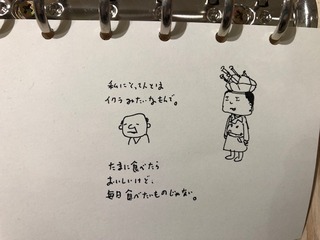 私に とは
イクラみたいなもんで。
たまに食べたら
おいしいけど、
毎日食べたいものじゃない。